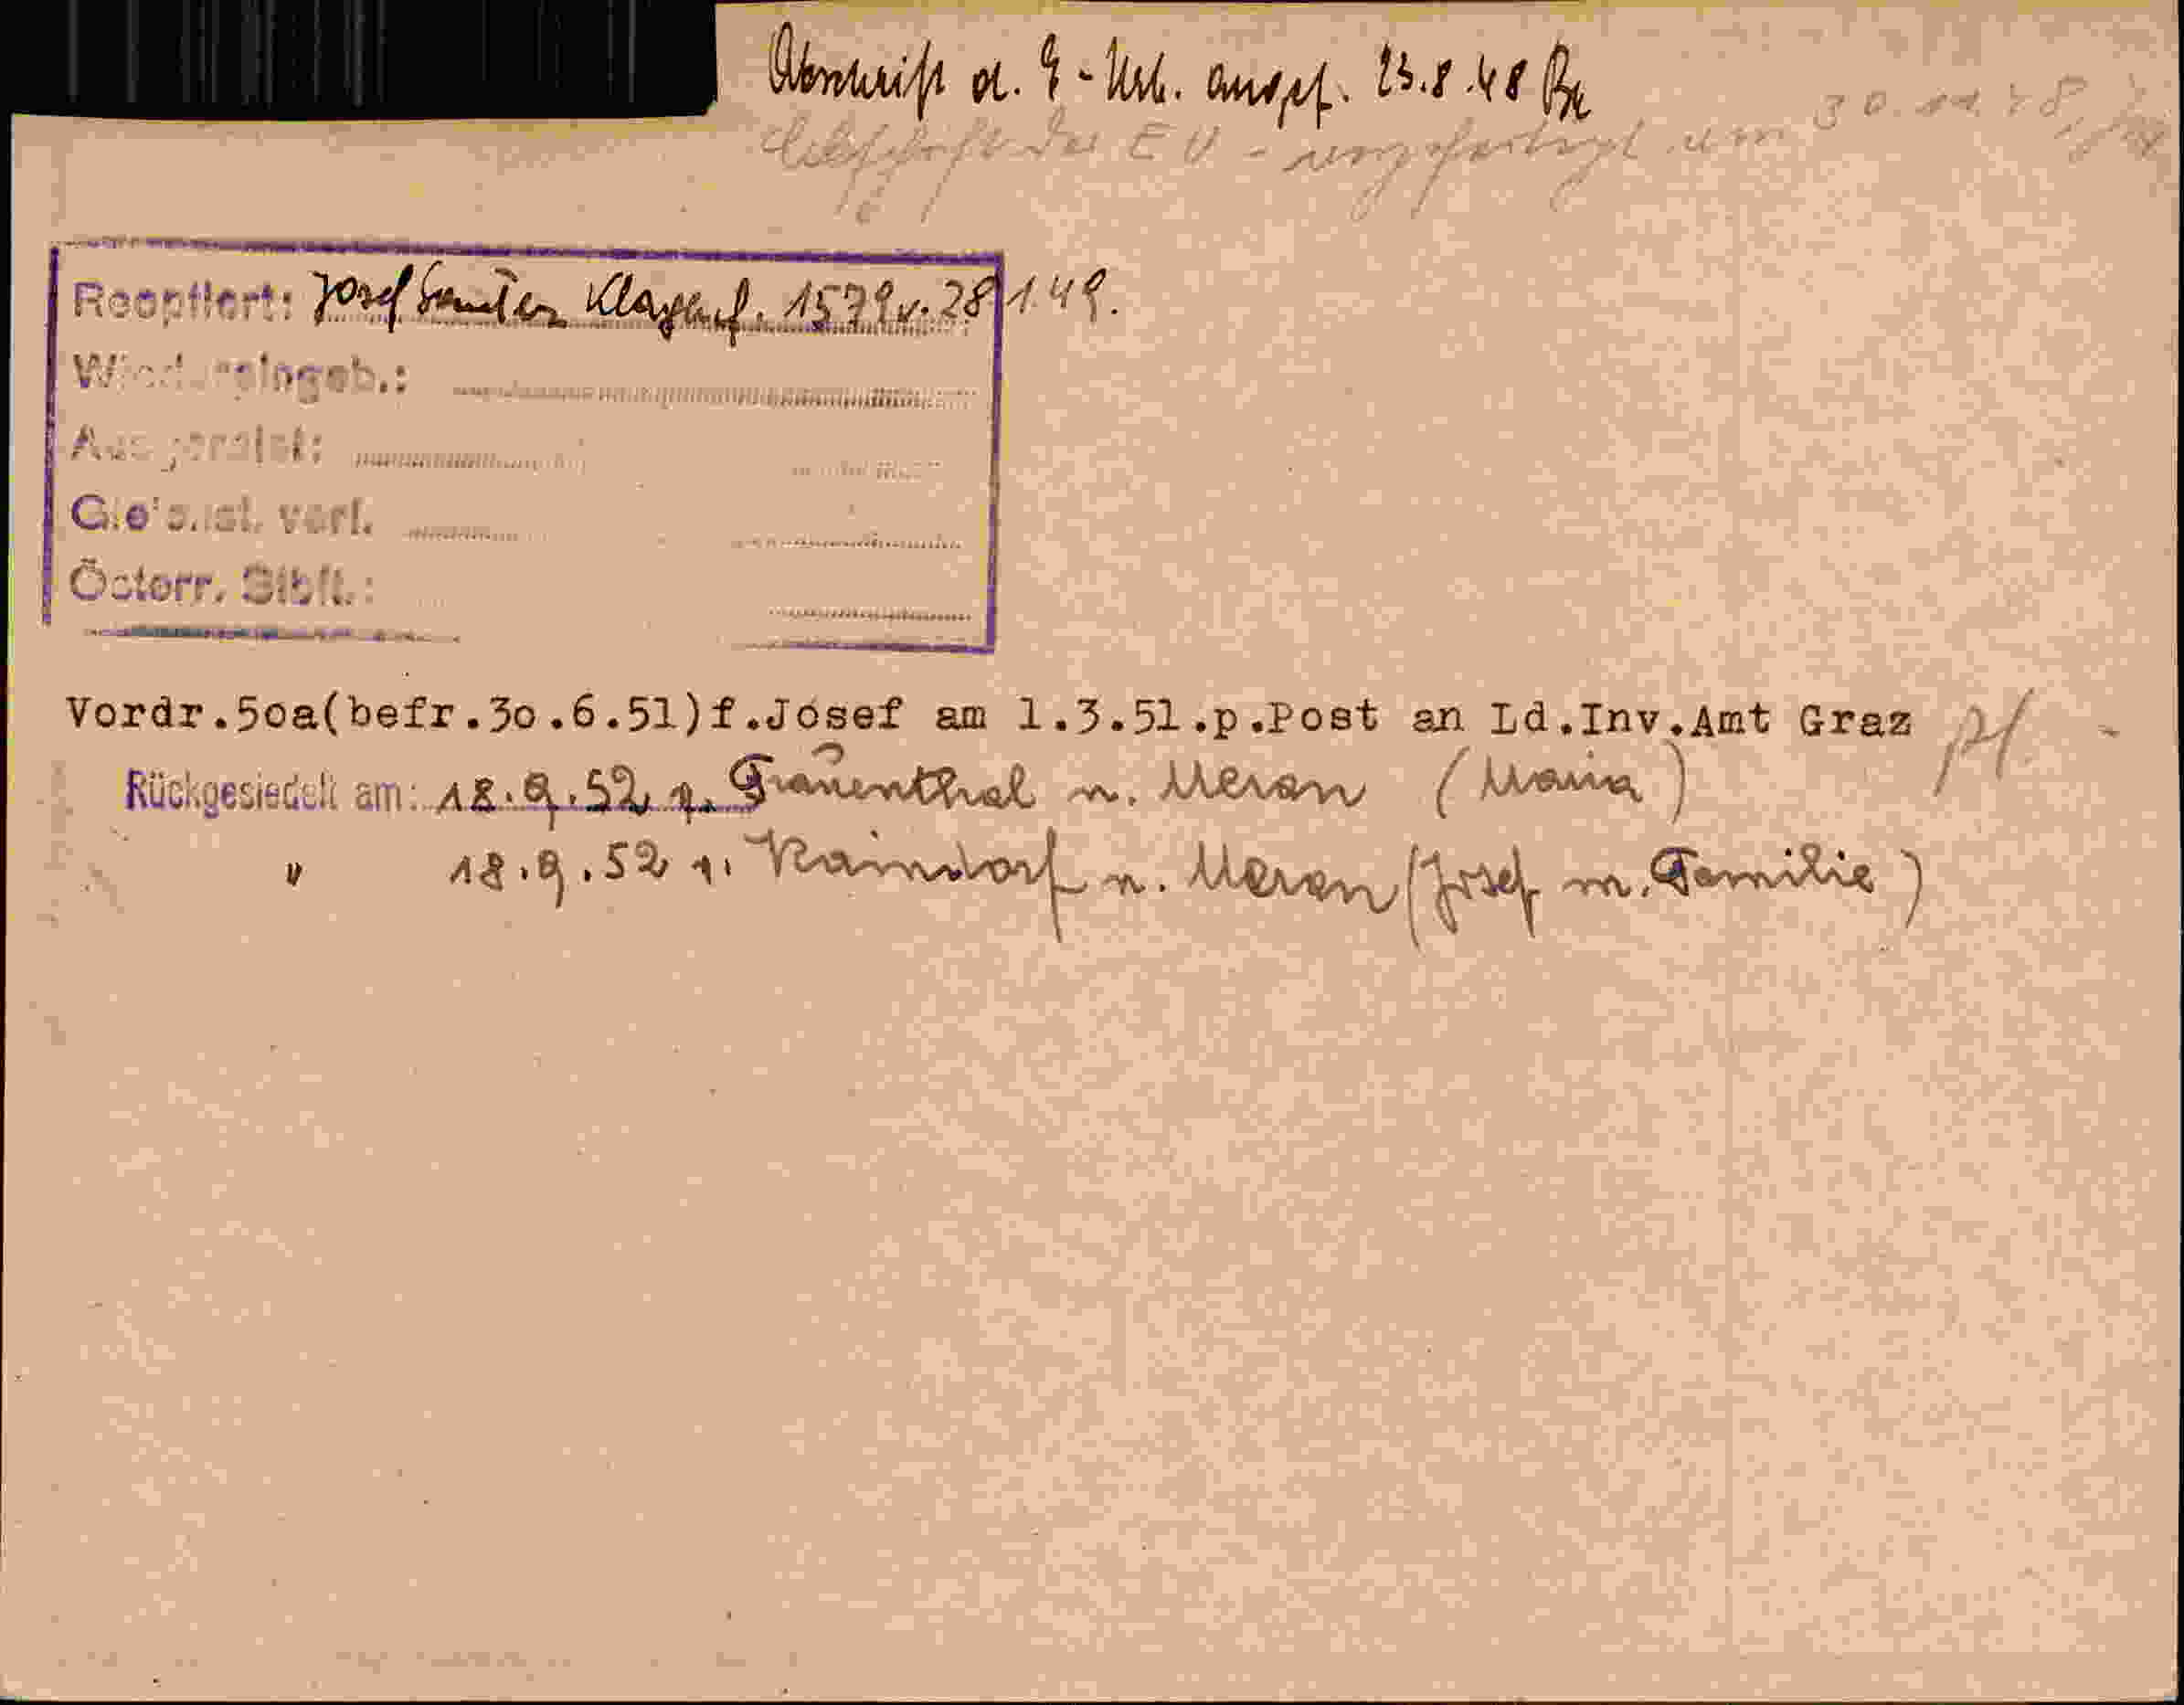 Abschrift d. E-Urk. ausgef. 23.8.48 Be
der EU - ausgefertigt am 30.11.48
Reoptiert: Josef Klagenf. 1579 v. 28 1.49.
Wiedereingeb.:
Ausgereist:
Österr. Stbft.:
Vordr.5oa(befr.3o.6.51)f.Josef am 1.3.51.p.Post an Ld.Inv.Amt Graz
Rückgesiedelt am: 18.9.52 v. Frauenthal n. Meran (Maria)
" 18.9.52 v. Kaindorf n. Meran (Josef m. Familie)